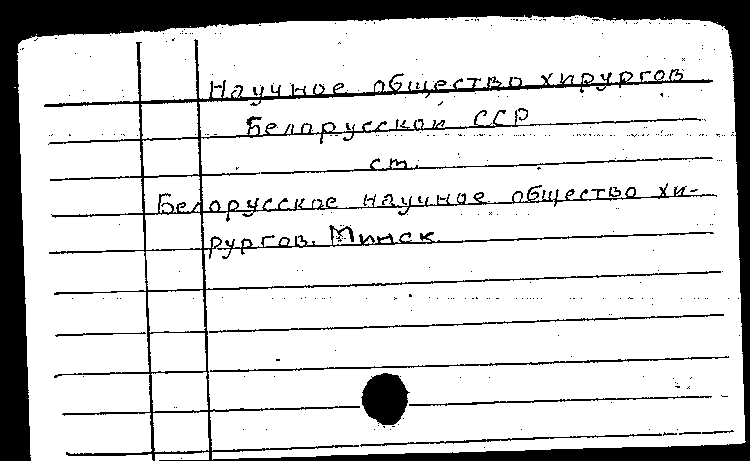 Научное общество хирургов
Белорусской ССР
см.
Белорусское научное общество хи-
рургов. Минск.